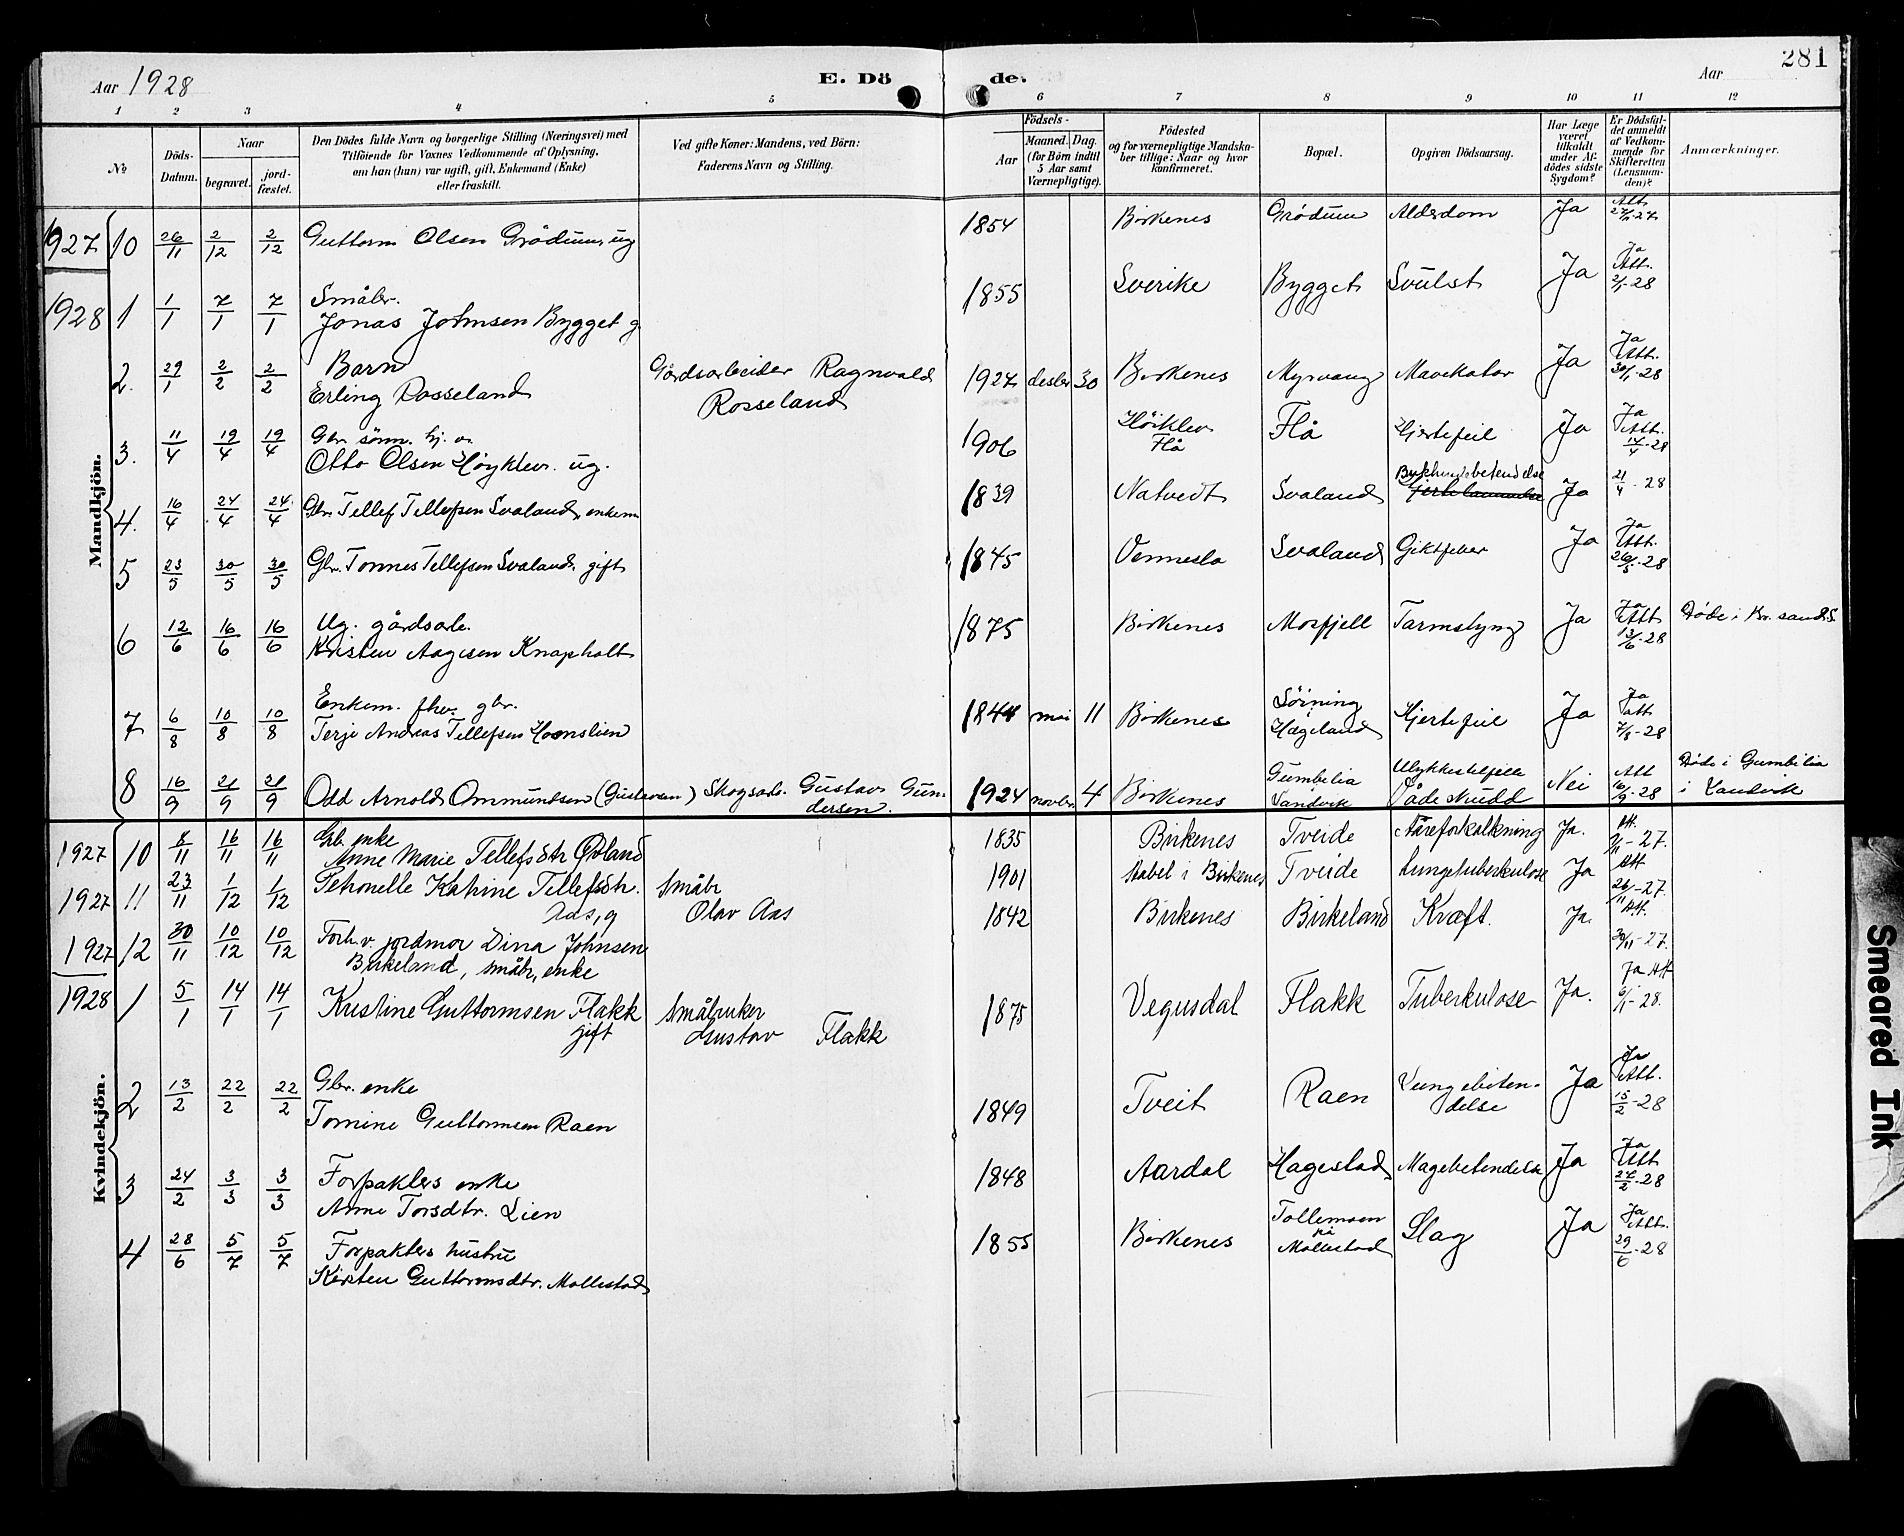 281
Aar 1928 E. Dö de. Aar
1 2 3 4 5 6 7 8 9 10 11 12
№
Döds-Datum.
Naar
begravet.
jord-fæstet.
Den Dödes fulde Navn og borgerlige Stilling (Næringsvei) med
Tilföiende for Voxnes Vedkommende af Oplysning,
om han (hun) var ugift, gift, Enkemand (Enke)
eller fraskilt.
Ved gifte Koner: Mandens, ved Börn:
Faderens Navn og Stilling.
Födsels-
Aar
Maaned. Dag.
(for Börn indtil
5 Aar samt
Værnepligtige).
Födested
og for værnepligtige Mandska-
ber tillige: Naar og hvor
konfirmeret.
Bopæl.
Opgiven Dödsaarsag.
Har Læge
været
tilkaldt
under Af-
dödes sidste
Sygdom?
Er Dödsfal-
det anmeldt
af Vedkom-
mende for
Skifteretten
(Lensman-
den)?
Anmærkninger.
Mandkjön.
1927 10 26/11 2/12 2/12 Guttorm Olsen Grödum, ug 1854 Birkenes Grödum Alderdom Ja Att 27/11-27
1928 1 1/1 7/1 7/1 Småbr.
Jonas Johnsen Bygget g. 1855 Sverike Bygget Svulst Ja Ja Att. 2/1-28
2. 29/1 2/2 2/2 Barn
Erling Rosseland Gårdsarbeider Ragnvald
Rosseland 1927 desbr 30 Birkenes Myrvang Mavekatar Ja Ja Att. 30/1-28
3. 11/4 19/4 19/4 Gbr. sønn. hj. a.
Otto Olsen Høyklev. ug. 1906 Høiklev
Flå Flå Hjertefeil Ja Ja Att. 14/4-28
4. 16/4 24/4 24/4 Gbr. Tellef Tellefsen Svaland, enkem 1839 Natvedt Svaland Bukhindebetendelse Ja 21/4-28
5 23/5 30/5 30/5 Gbr. Tønnes Tellefsen Svaland, gift 1845 Vennesla Svaland Giktfeber Ja Ja Att. 26/5-28
6 12/6 16/6 16/6 Ug. gårdsarb.
Kristen Aagesen Knapholt 1875 Birkenes Mosfjell Tarmslyng Ja Ja Att 13/6-28 Døde i Kr.sand S.
7 6/8 10/8 10/8 Enkem. fhv. gbr.
Terje Andreas Tellefsen 1844 mai 11 Birkenes
Hægeland Hjertefeil Ja Ja Att 7/8-28
8 16/9 21/9 21/9 Odd Arnold Ommundsen (Gustavsen) Skogsarb. Gustav Gun-
dersen. 1924 novbr 4 Birkenes Gumbilia
Landvik Ulykkestilfelle
Vådeskudd Nei Att 16/9-28 Døde i Gumbilia
i Landvik
Kvindekjön.
1927 10 8/11 16/11 16/11 Gb. enke
Anne Marie Tellefsdtr Øvland 1835 Birkenes Tveide Åreforkalkning Ja. Att. 9/11-27.
1927 11 23/11 1/12 1/12 Petronelle Katrine Tellefsdtr.
Aas, g Småbr
Olav Aas 1901 Stabel i Birkenes Tveide Lungetuberkulose Ja Att 26/11-27
1927 12 30/11 10/12 10/12 Forh.v. jordmor Dina Johnsen
Birkeland, småbr, enke 1842 Birkenes Birkeland Kræft. Ja. Att. 30/11-27.
1928 1 5/1 14/1 14/1 Kristine Guttormsen Flakk
gift Småbruker
Gustav Flakk 1875 Vegusdal Flakk Tuberkulose Ja. Ja Att 6/1-28.
2 13/2 22/2 22/2 Gbr. enke
Tomine Guttormsen Raen 1849 Tveit Raen Lungebeten-
delse Ja Ja Att. 15/2-28
3 24/2 3/3 3/3 Forpakters enke
Anne Torsdtr. Lien 1848 Aardal Hagestad Magebetendelse Ja Ja Att 27/2-28
4 28/6 5/7 5/7 Forpakters hustru
Kirsten Guttormsdtr. Mollestad 1855 Birkenes
på
Mollestad Slag Ja Ja Att. 29/6-28
Smeared Ink